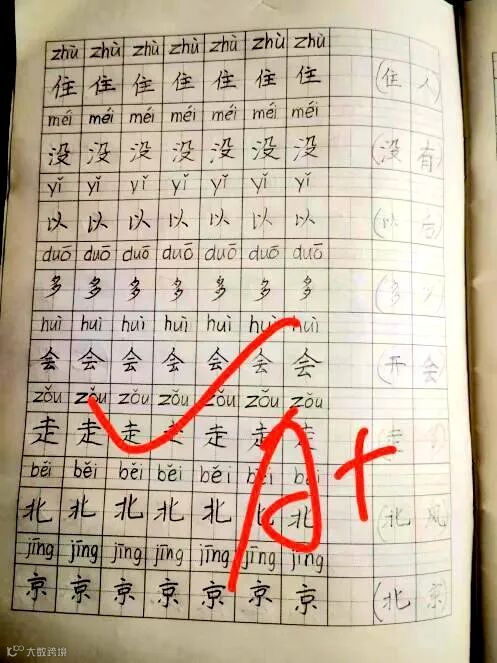 zhù zhù zhù zhù zhù zhù zhù
住 住 住 住 住 住 住 (住 人)
méi méi méi méi méi méi méi
没 没 没 没 没 没 没 (没 有)
yǐ yǐ yǐ yǐ yǐ yǐ yǐ
以 以 以 以 以 以 以 (以 后)
duō duō duō duō duō duō duō
多 多 多 多 多 多 多 (多 少)
huì huì huì huì huì huì huì
会 会 会 会 会 会 会 (开 会)
zǒu zǒu zǒu zǒu zǒu zǒu zǒu
走 走 走 走 走 走 走 (走
běi běi běi běi běi běi běi
北 北 北 北 北 北 北 (北 风)
jīng jīng jīng jīng jīng jīng jīng
京 京 京 京 京 京 京 (北 京)
A+
大数跨境